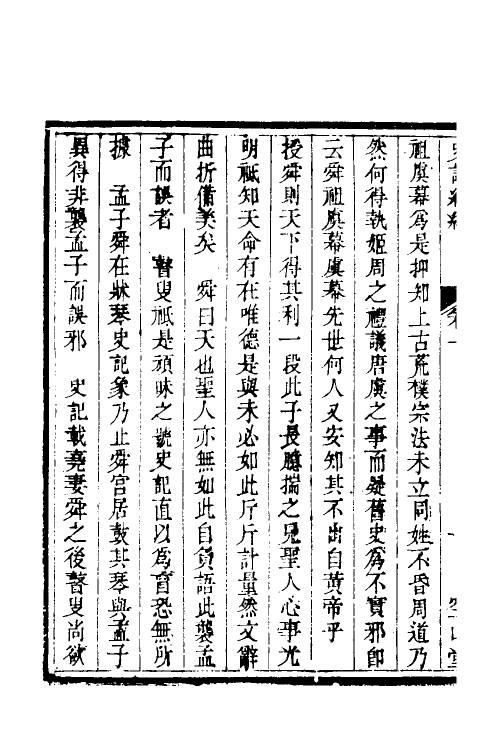 史記糾紕 卷一 空山堂
祖虞幕為是抑知上古荒樸宗法未立同姓不昏周道乃
然何得執姬周之禮議唐虞之事而疑舊史為不實邪即
云舜祖虞幕虞幕先世何人又安知其不出自黃帝乎
授舜則天下得其利一段此子長臆揣之見聖人心事光
明祗知天命有在唯德是與未必如此斤斤計量然文辭
曲折備美矣 舜曰天也聖人亦無如此自負語此襲孟
子而誤者 瞽叟祗是頑昧之號史記直以為盲恐無所
據 孟子舜在牀琴史記象乃止舜宮居鼓其琴與孟子
異得非襲孟子而誤邪 史記載堯妻舜之後瞽叟尚欲